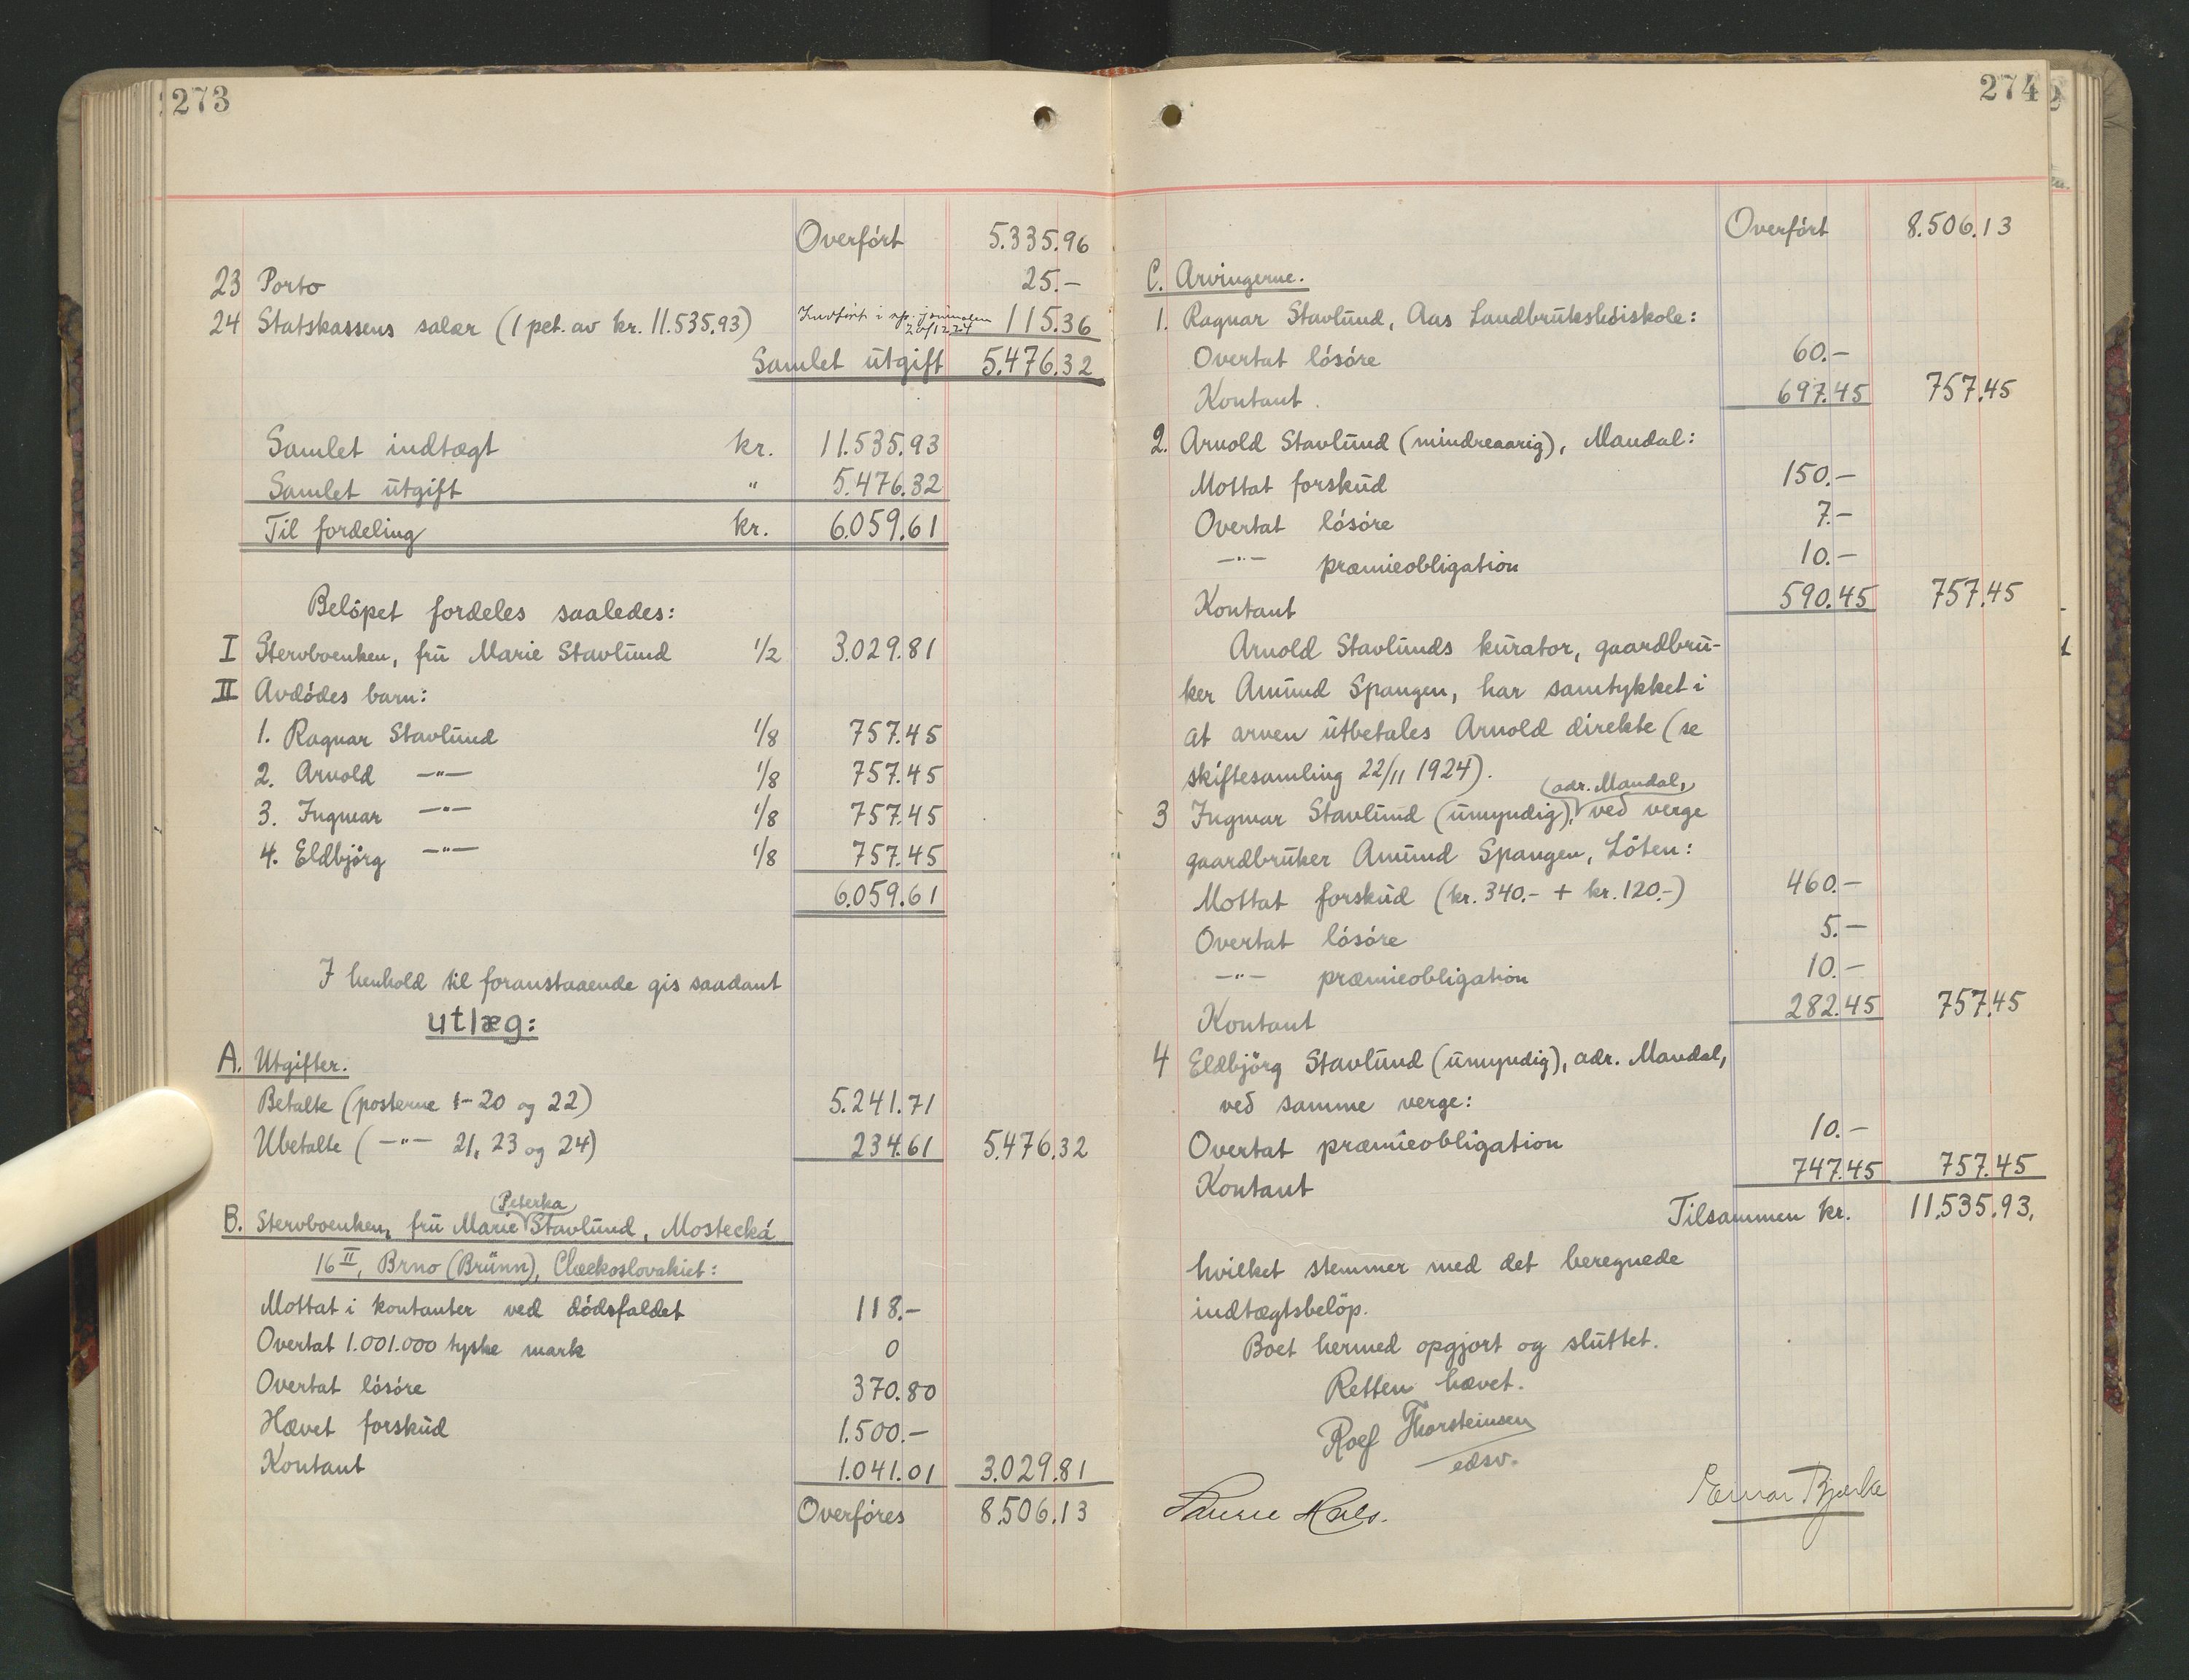 273
Overført 5.335.96
23 Porto 25.-
24 Statskassens salær (1 pct. av kr. 11.535.93) Indført i sp. journalen 20/12 24 115.36
Samlet utgift 5.476.32
Samlet indtægt kr. 11.535.93
Samlet utgift " 5.476.32
Til fordeling kr. 6.059.61
Beløpet fordeles saaledes:
I Stervboenken, frū Marie Stavlūnd 1/2 3.029.81
II Avdødes barn:
1. Ragnar Stavlūnd 1/8 757.45
2. Arvold -"- 1/8 757.45
3. Ingmar -"- 1/8 757.45
4. Eldbjörg -"- 1/8 757.45
6.059.61
I henhold til foranstaaende gis saadant
utlæg:
A. Utgifter.
Betalte (posterne 1-20 og 22) 5.241.71
Ubetalte ( -"- 21, 23 og 24) 234.61 5.476.32
(Peterka)
B. Stervboenken, frū Marie Stavlūnd, Mostecká
16 II, Brno (Brünn), Checkoslovakiet:
Mottat i kontanter ved dødsfaldet 118.-
Overtat 1.001.000 tyske mark 0
Overtat løsøre 370.80
Hævet forskūd 1.500.-
Kontant 1.041.01 3.029.81
Overføres 8.506.13
274
Overført 8.506.13
C. Arvingerne.
1. Ragnar Stavlūnd, Aas Landbrūkshøiskole:
Overtat løsøre 60.-
Kontant. 697.45 757.45
2. Arnold Stavlūnd (mindreaarig), Mandal:
Mottat forskūd 150.-
Overtat løsøre 7.-
-"- præmieobligation 10.-
Kontant 590.45 757.45
Arnold Stavlūnds kūrator, gaardbrū-
ker Amūnd Spangen, har samtykket i
at arven ūtbetales Arnold direkte (se
skiftesamling 22/11 1924).
(adr. Mandal,)
3 Ingmar Stavlūnd (ūmyndig), ved verge
gaardbrūker Amūnd Spangen, Löten:
Mottat forskūd (kr. 340.- + kr. 120.-) 460.-
Overtat løsøre 5.-
-"- præmieobligation 10.-
Kontant 282.45 757.45
4 Eldbjörg Stavlūnd (ūmyndig), adr. Mandal,
ved samme verge:
Overtat præmieobligation 10.-
Kontant 747.45 757.45
Tilsammen kr. 11.535.93,
hvilket stemmer med det beregnede
indtægtsbeløp.
Boet hermed opgjort og slūttet.
Retten hævet.
Rolf Thorsteinsen
edsv.
Einar Bjerke